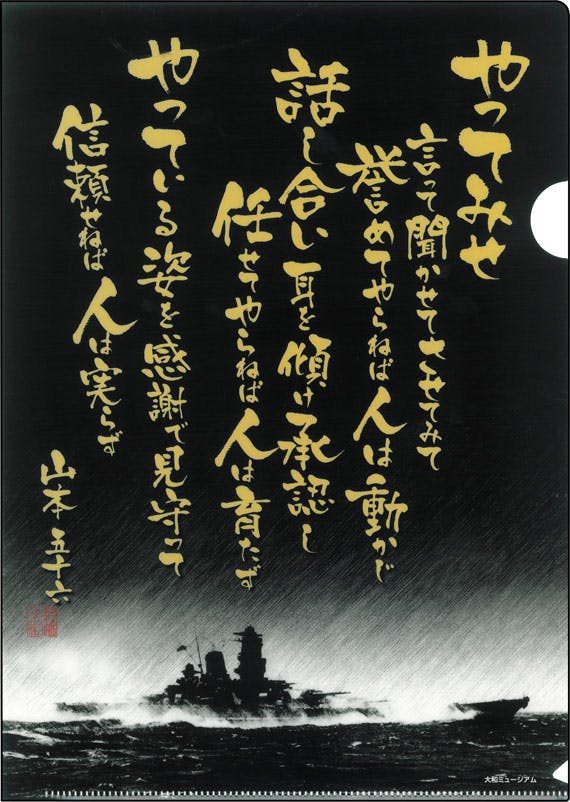 やってみせ
言って聞かせてさせてみて
誉めてやらねば人は動かじ
話し合い耳を傾け承認し
任せてやらねば人は育たず
やっている姿を感謝で見守って
信頼せねば人は実らず
山本五十六
大和ミュージアム